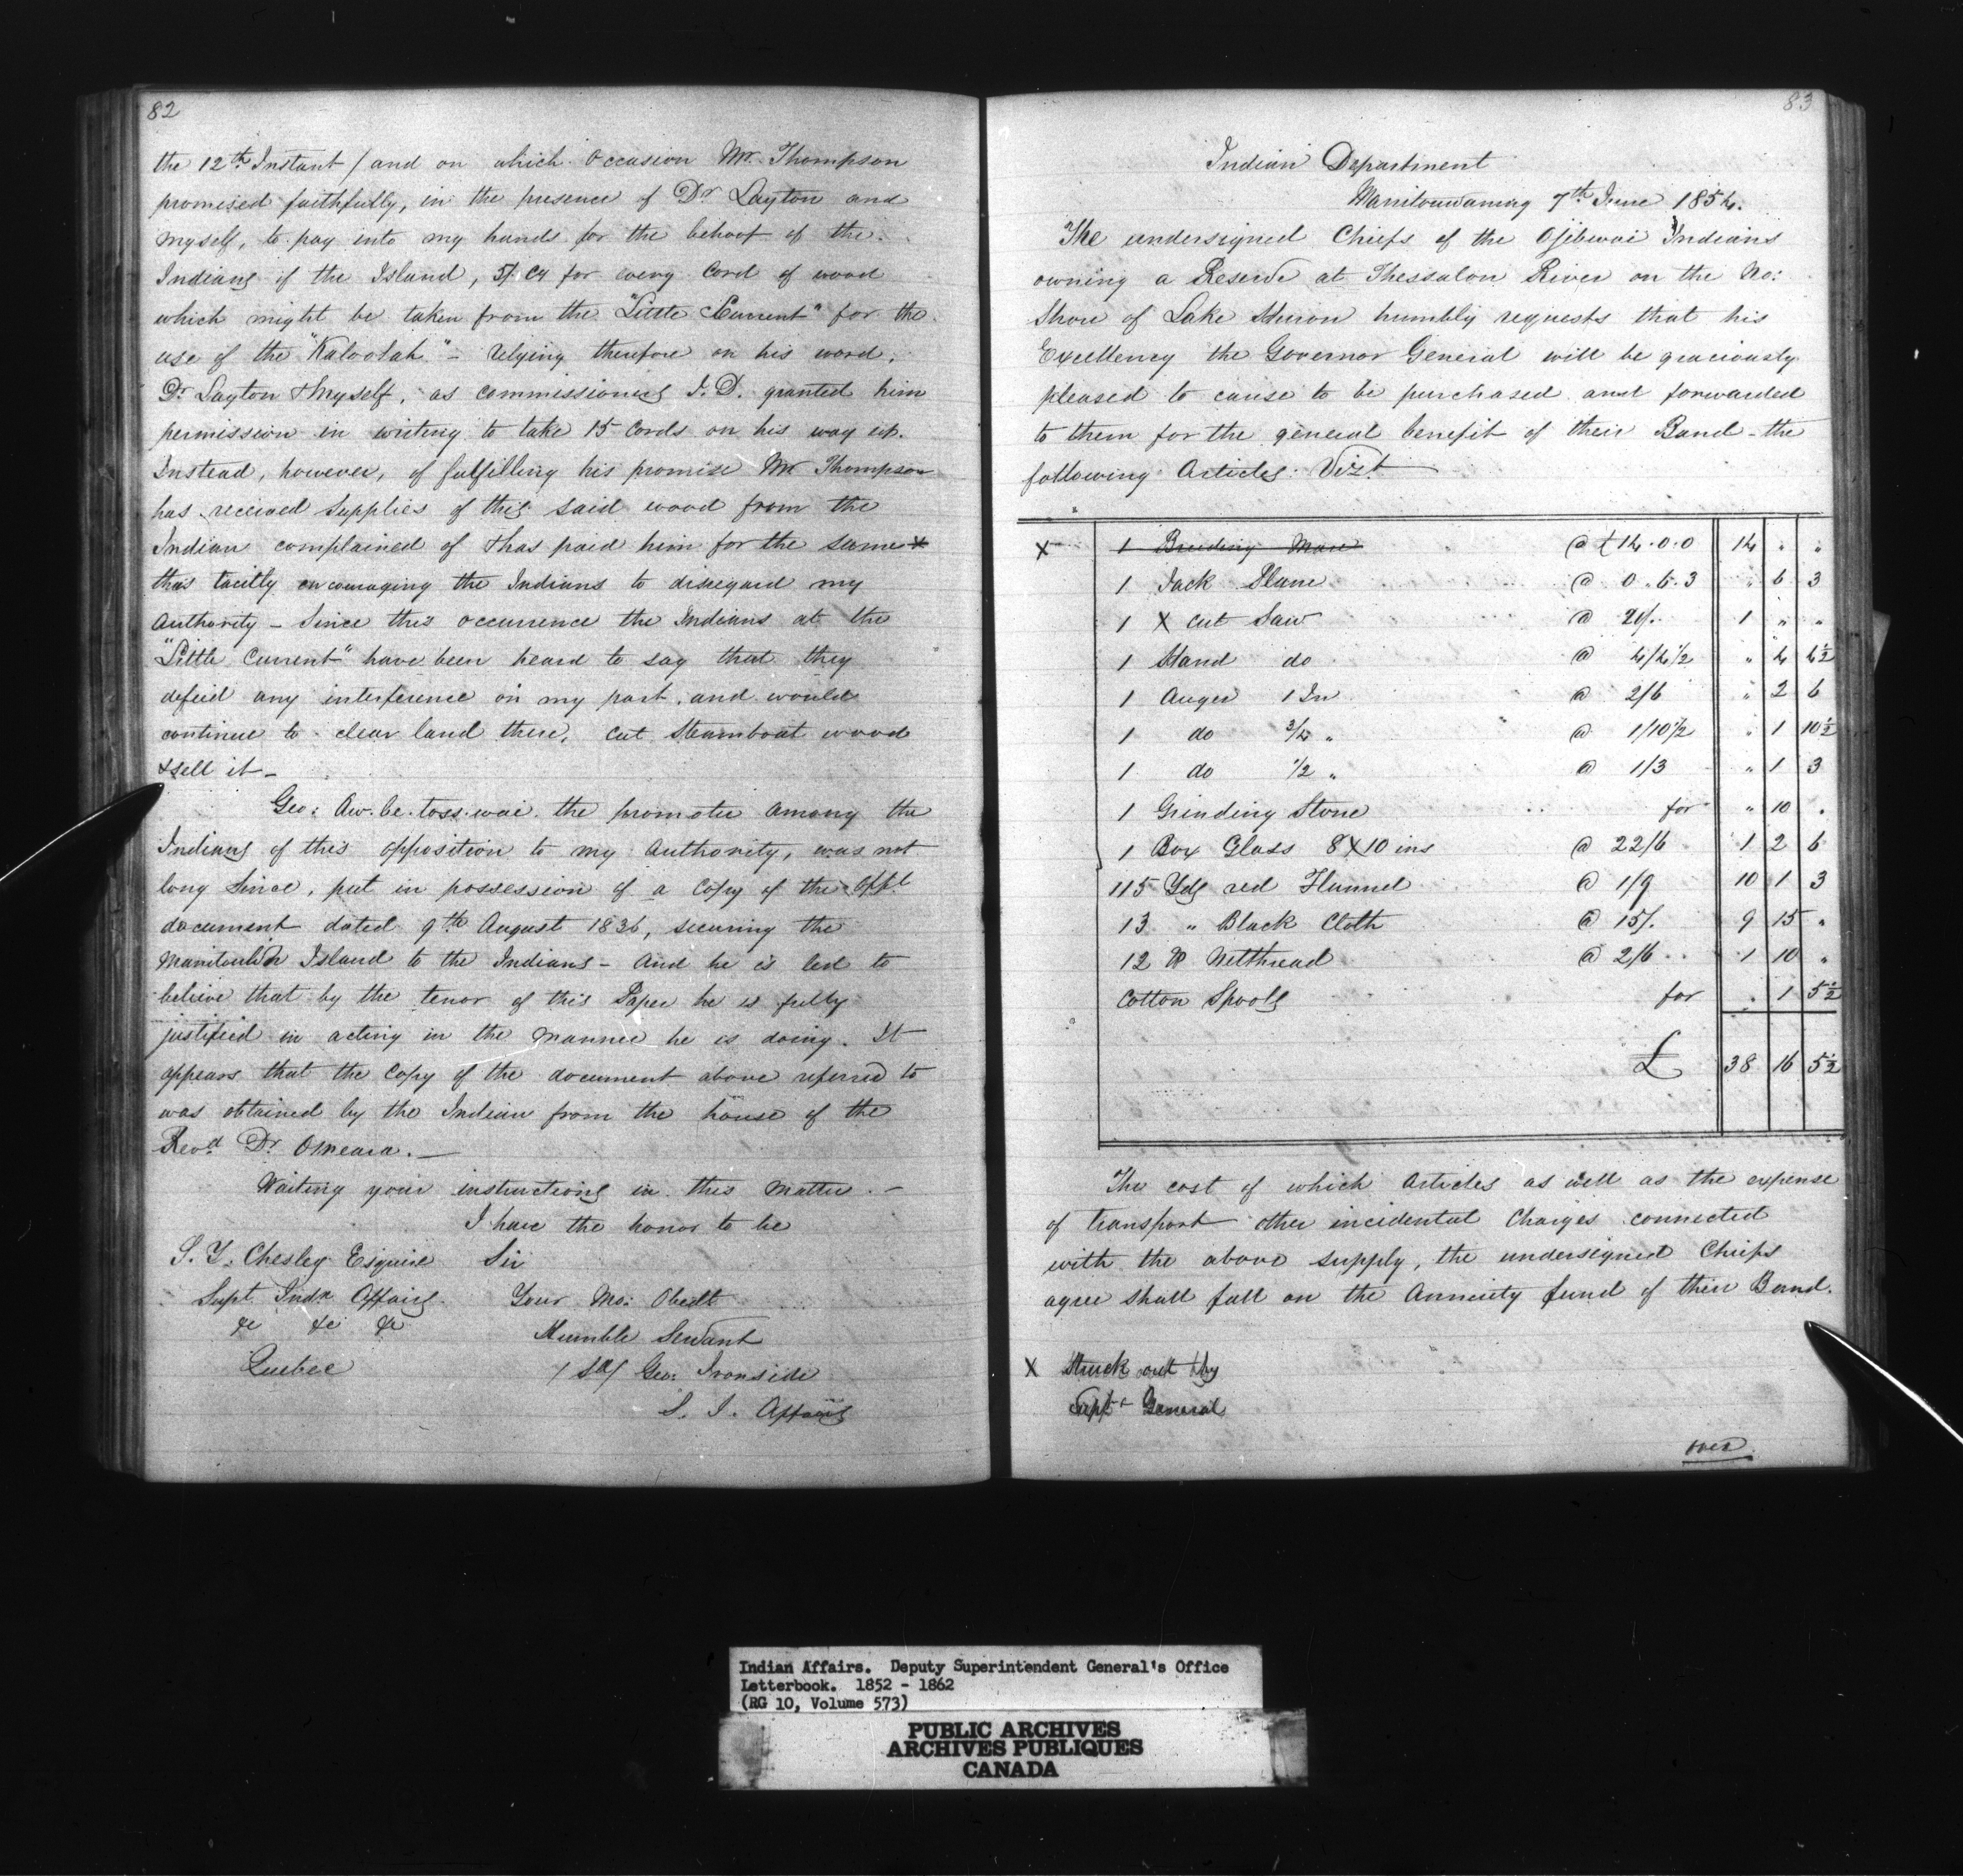 82
the 12th Instant / and on which occasion Mr. Thompson
promised faithfully, in the presence of Dr Layton and
myself, to pay into my hands for the behoof of the
Indians of the Island, 5/ Cy for every Cord of wood
which might be taken from the "Little Current" for the
use of the "Kaloolah" - relying therefore on his word,
Dr. Layton & myself, as commissioners I. D. granted him
permission in writing to take 15 Cords on his way up.
Instead, however, of fulfilling his promise Mr Thompson
has received supplies of this said wood from the
Indian complained of & has paid him for the same &
thus tacitly encouraging the Indians to disregard my
Authority - Since this occurrence the Indians at the
"Little Current" have been heard to say that they
defied any interference on my part, and would
continue to clear land there, cut Steamboat wood
& sell it -
Geo: Aw.be.toss.wai. the promoter among the
Indians of this opposition to my Authority, was not
long since, put in possession of a Copy of the Offl
document dated 9th August 1836, securing the
Manitoulin Island to the Indians - And he is led to
believe that by the tenor of this Paper he is fully
justified in acting in the manner he is doing. It
appears that the Copy of the document above referred to
was obtained by the Indian from the house of the
Revd. Dr. Omeara. -
Waiting your instructions in this matter. -
I have the honor to be
S. Y. Chesley Esquire Sir
Supt. Indn Affairs. Your Mo: Obedt
&c &c &c Humble Servant
Quebec / Sd/ Geo: Ironside
S. I. Affairs
83
Indian Department
Manitouwaning 7th June 1854.
The undersigned Chiefs of the Ojibwai Indians
owning a Reserve at Thessalon River on the No:
Shore of Lake Huron humbly requests that his
Excellency the Governor General will be graciously
pleased to cause to be purchased and forwarded
to them for the general benefit of their Band - the
following Articles: Vizt
X 1 Breeding Mare @ £14.0.0 14 " "
1 Jack Plane @ 0.6.3 " 6 3
1 X cut Saw @ 20/. 1 " "
1 Hand do @ 4/4 1/2 " 4 4½
1 Auger 1 In @ 2/6 " 2 6
1 do 3/4 " @ 1/10 1/2 " 1 10½
1 do 1/2 " @ 1/3 " 1 3
1 Grinding Stone for " 10 .
1 Box Glass 8X10 ins @ 22/6 1 2 6
115 Yds red Flannel @ 1/9 10 1 3
13 " Black Cloth @ 15/. 9 15 "
12 lb Netthread @ 2/6 1 10 "
Cotton Spools for . 1 5½
£ 38 16 5½
The cost of which Articles as well as the expense
of transport other incidental Charges connected
with the above supply, the undersigned Chiefs
agree shall fall on the Annuity fund of their Band.
X Struck out by
Supt General
over
Indian Affairs. Deputy Superintendent General's Office
Letterbook. 1852 - 1862
(RG 10, Volume 573)
PUBLIC ARCHIVES
ARCHIVES PUBLIQUES
CANADA